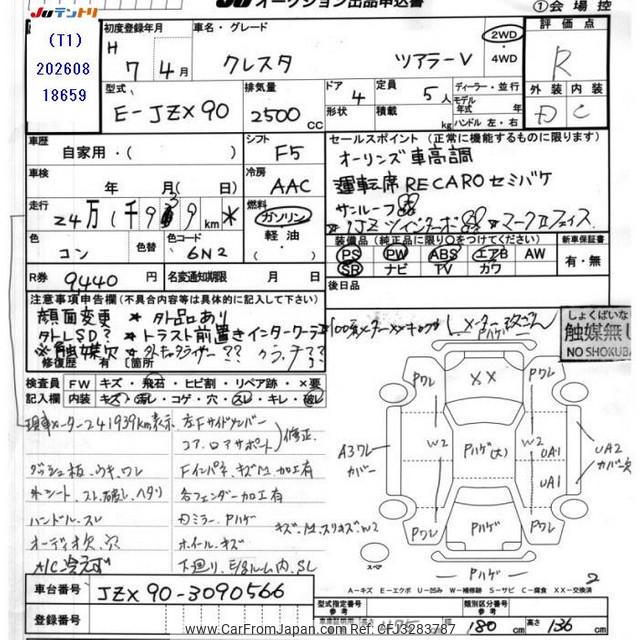 Juテントリ
JU オークション出品申込書
①会場控
(T1)
202608
18659
初度登録年月
H 7年 4月
車名・グレード
クレスタ
ツアラーV
2WD
・4WD
評価点
R
型式
E-JZX90
排気量
2500
cc
ドア
4
形状
定員
5人
積載
kg
ディーラー・並行
モデル
年式 年
ハンドル 左・右
外装
内装
C
車歴
自家用・( )
シフト
F5
車検
年 月( 日)
冷房
AAC
走行
24万1千939km*
燃料
ガソリン
軽油
色
コン
色替
色コード
6N2
R券
9440円
名変通知期限
月 日
セールスポイント (正常に機能するものに限ります)
オーリンズ車高調
運転席RECAROセミバケ
サンルーフ
*1JZツインターボ *マークIIフェイス
装備品(純正品に限り○をつけてください)
PS PW ABS エアB AW
SR ナビ TV カワ
新車保証書
有・無
後日品
注意事項申告欄(不具合内容等は具体的に記入して下さい)
顔面変更 * 外品あり
外LSD? * トラスト前置きインタークーラー
※触媒欠
修復歴 有 [箇所
しょくばいな
触媒無し
NO SHOKUBA
検査員
記入欄
FW
キズ・飛石・ヒビ割・リペア跡・×要
内装
キズ・汚れ・コゲ・穴・スレ・キレ・破レ
現車メーター241939km表示
左Fサイドメンバー
コア、ロアサポート
修正
ダッシュ板、ウキ、ワレ
Fインパネ、キズM、加工有
外シート、スレ、破レ、ヘタリ
各フェンダー加工有
ハンドル、スレ
ミラー、Pハゲ
オーディオ欠、穴
ホイール、キズ
A/C冷えず
下廻り、E/ルーム内、SL
Pワレ
XX
Pワレ
A3ワレ
カバー
W2
Pハゲ(大)
W2
UA1
UA1
UA2
カバー欠
キズ、M、スリキズW2
Pワレ
Pハゲ
Pワレ
スペア
Pハゲ
2
A-キズ E-エクボ U-凹み W-補修跡 S-サビ C-腐食 XX-交換済
車台番号
JZX90-3090566
登録番号
型式指定番号
参考
類別区分番号
参考
長さ
cm
180
cm
高さ
136
cm
www.CarFromJapan.com Ref: CFJ3283787